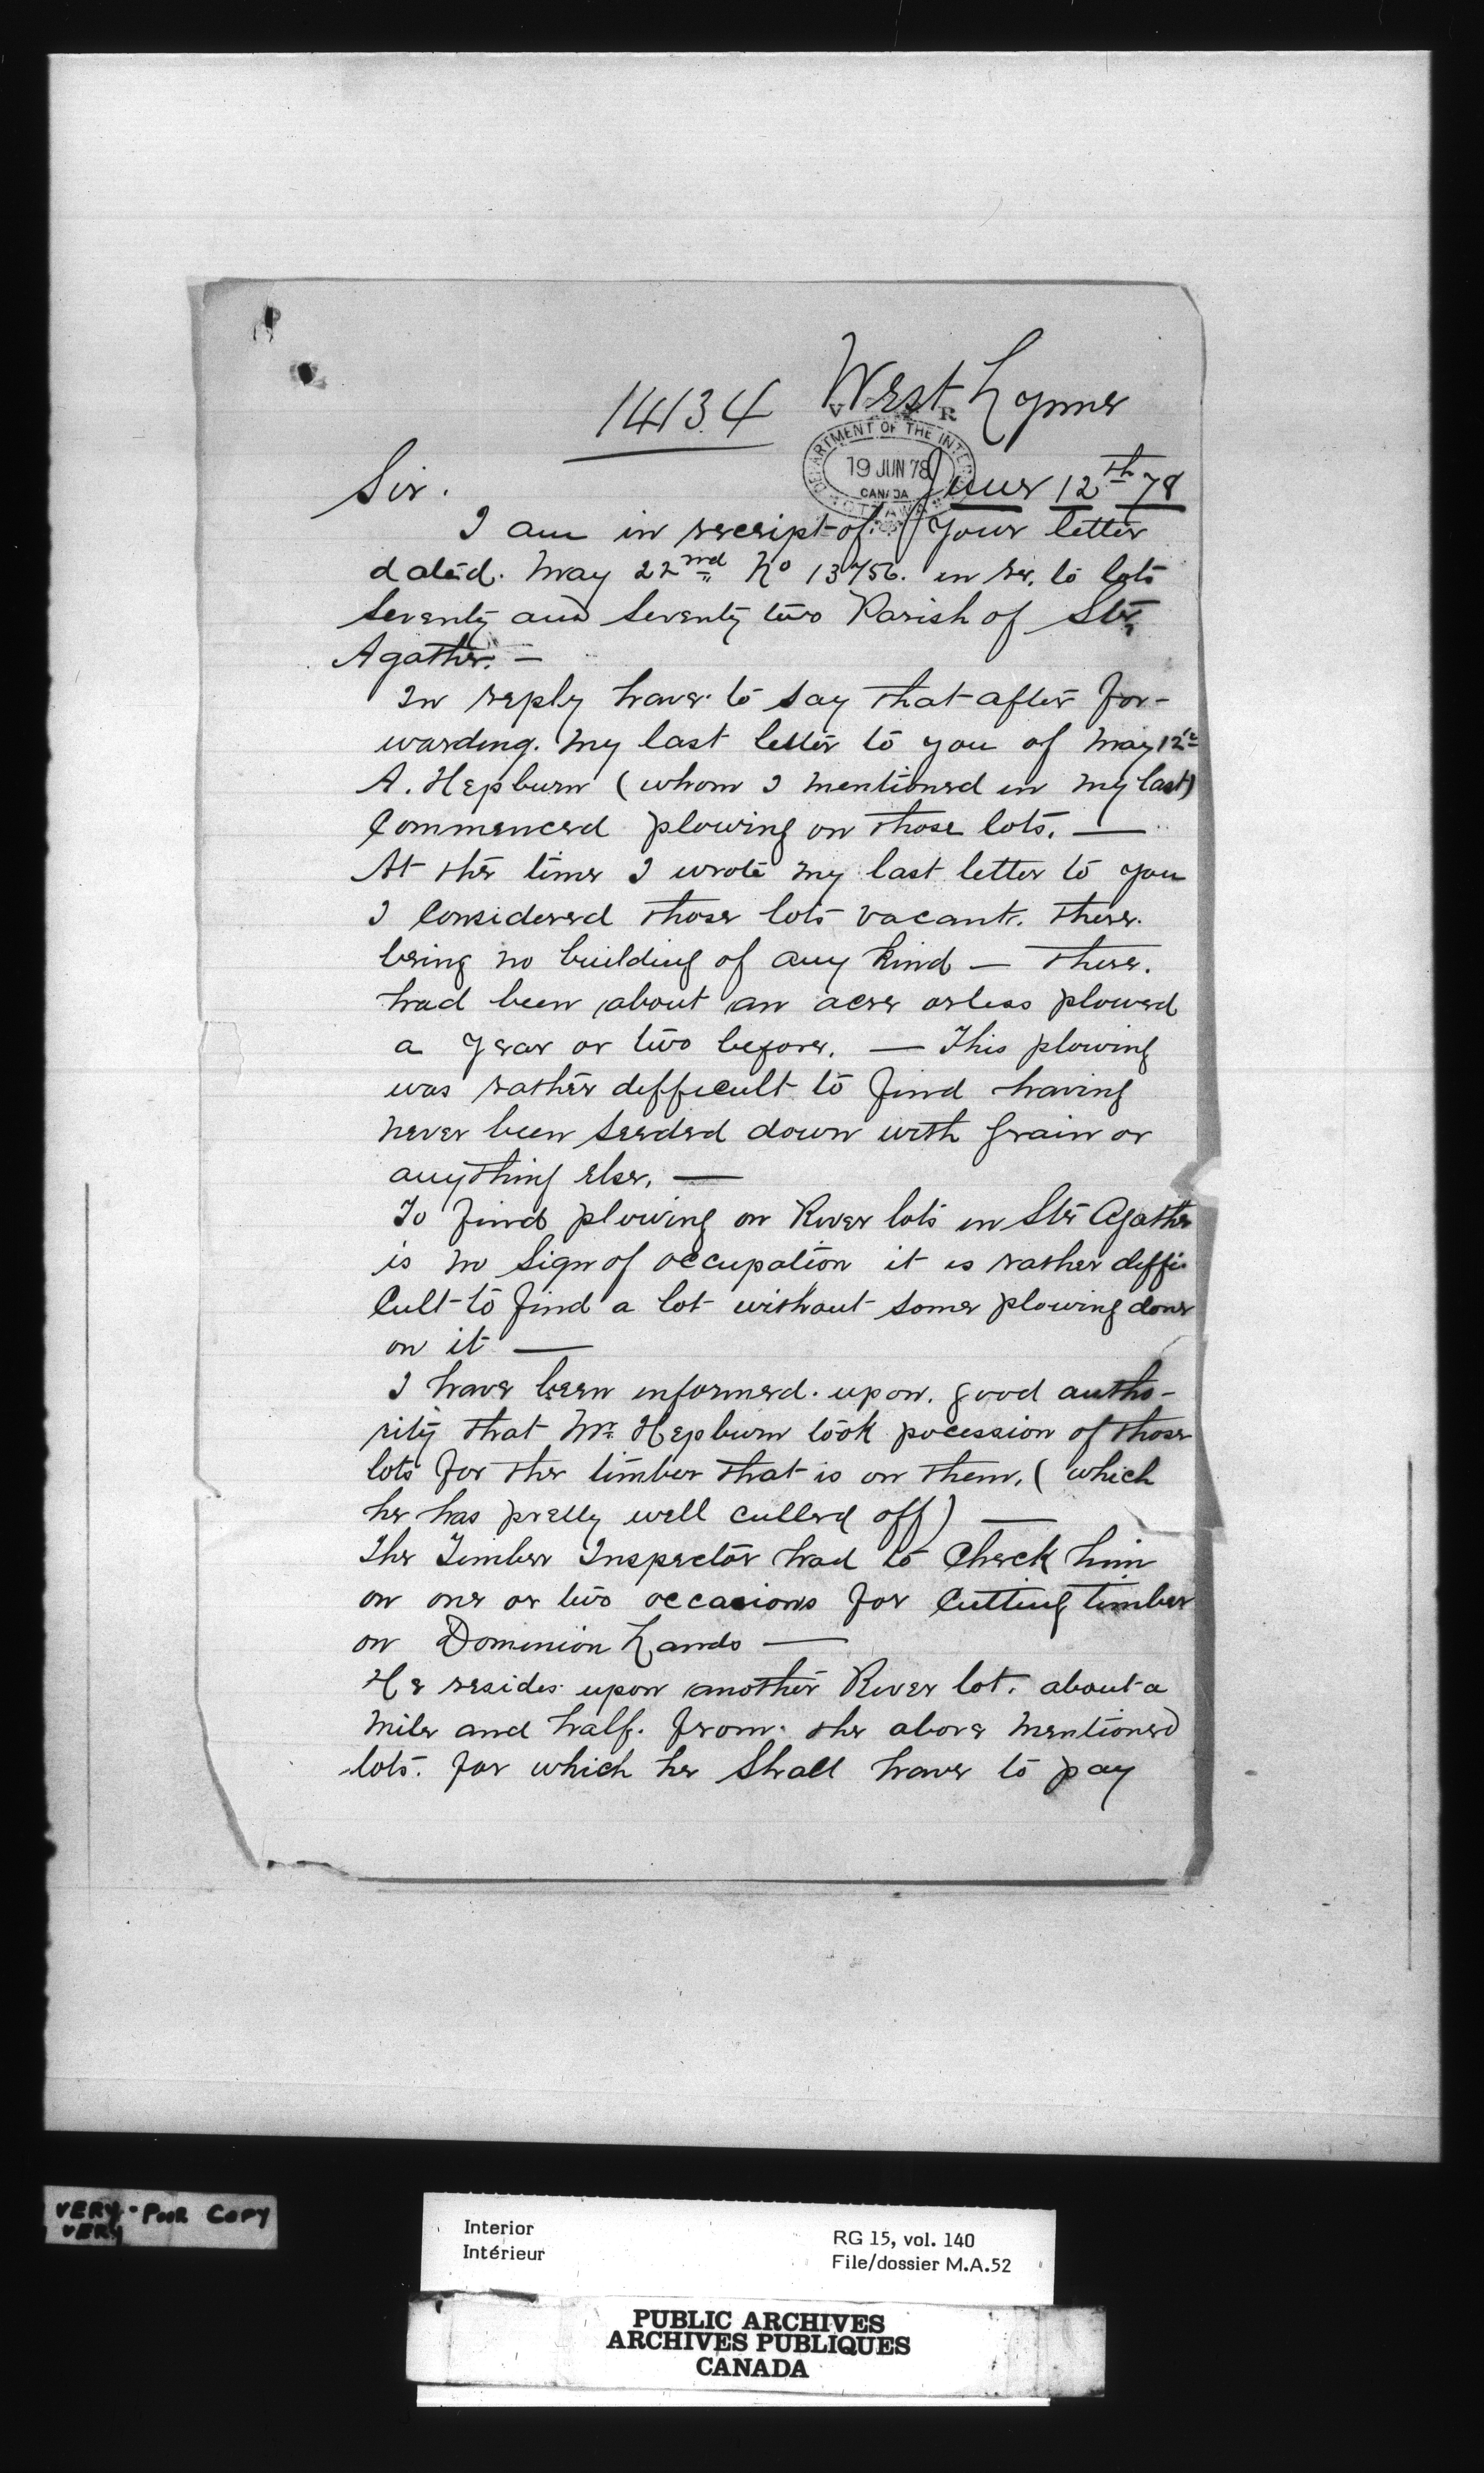 14134
West Lynne
V R
DEPARTMENT OF THE INTERIOR
19 JUN 78
CANADA
OTTAWA
June 12th 78
Sir.
I am in receipt of your letter
dated. May 22nd No 13756. in re. to lots
Seventy and Seventy two Parish of Ste
Agathe. —
In reply have to say that after for-
warding. my last letter to you of May 12th
A. Hepburn (whom I mentioned in my last)
Commenced plowing on those lots. —
At the time I wrote my last letter to you
I Considered those lots vacant. there.
being no building of any kind — there.
had been about an acre or less plowed
a year or two before. — This plowing
was rather difficult to find having
never been seeded down with Grain or
anything else. —
To find plowing on River lots in Ste Agathe
is no Sign of occupation it is rather diffi
Cult to find a lot without some plowing done
on it —
I have been informed. upon. good autho-
rity that Mr. Hepburn took pocession of those
lots for the timber that is on them, (which
he has pretty well culled off) —
The Timber Inspector had to Check him
on one or two occasions for Cutting timber
on Dominion Lands —
He resides upon another River lot. about a
Mile and half. from. the above Mentioned
lots. for which he Shall have to pay
VERY POOR COPY
VERY
Interior
Intérieur
RG 15, vol. 140
File/dossier M.A.52
PUBLIC ARCHIVES
ARCHIVES PUBLIQUES
CANADA